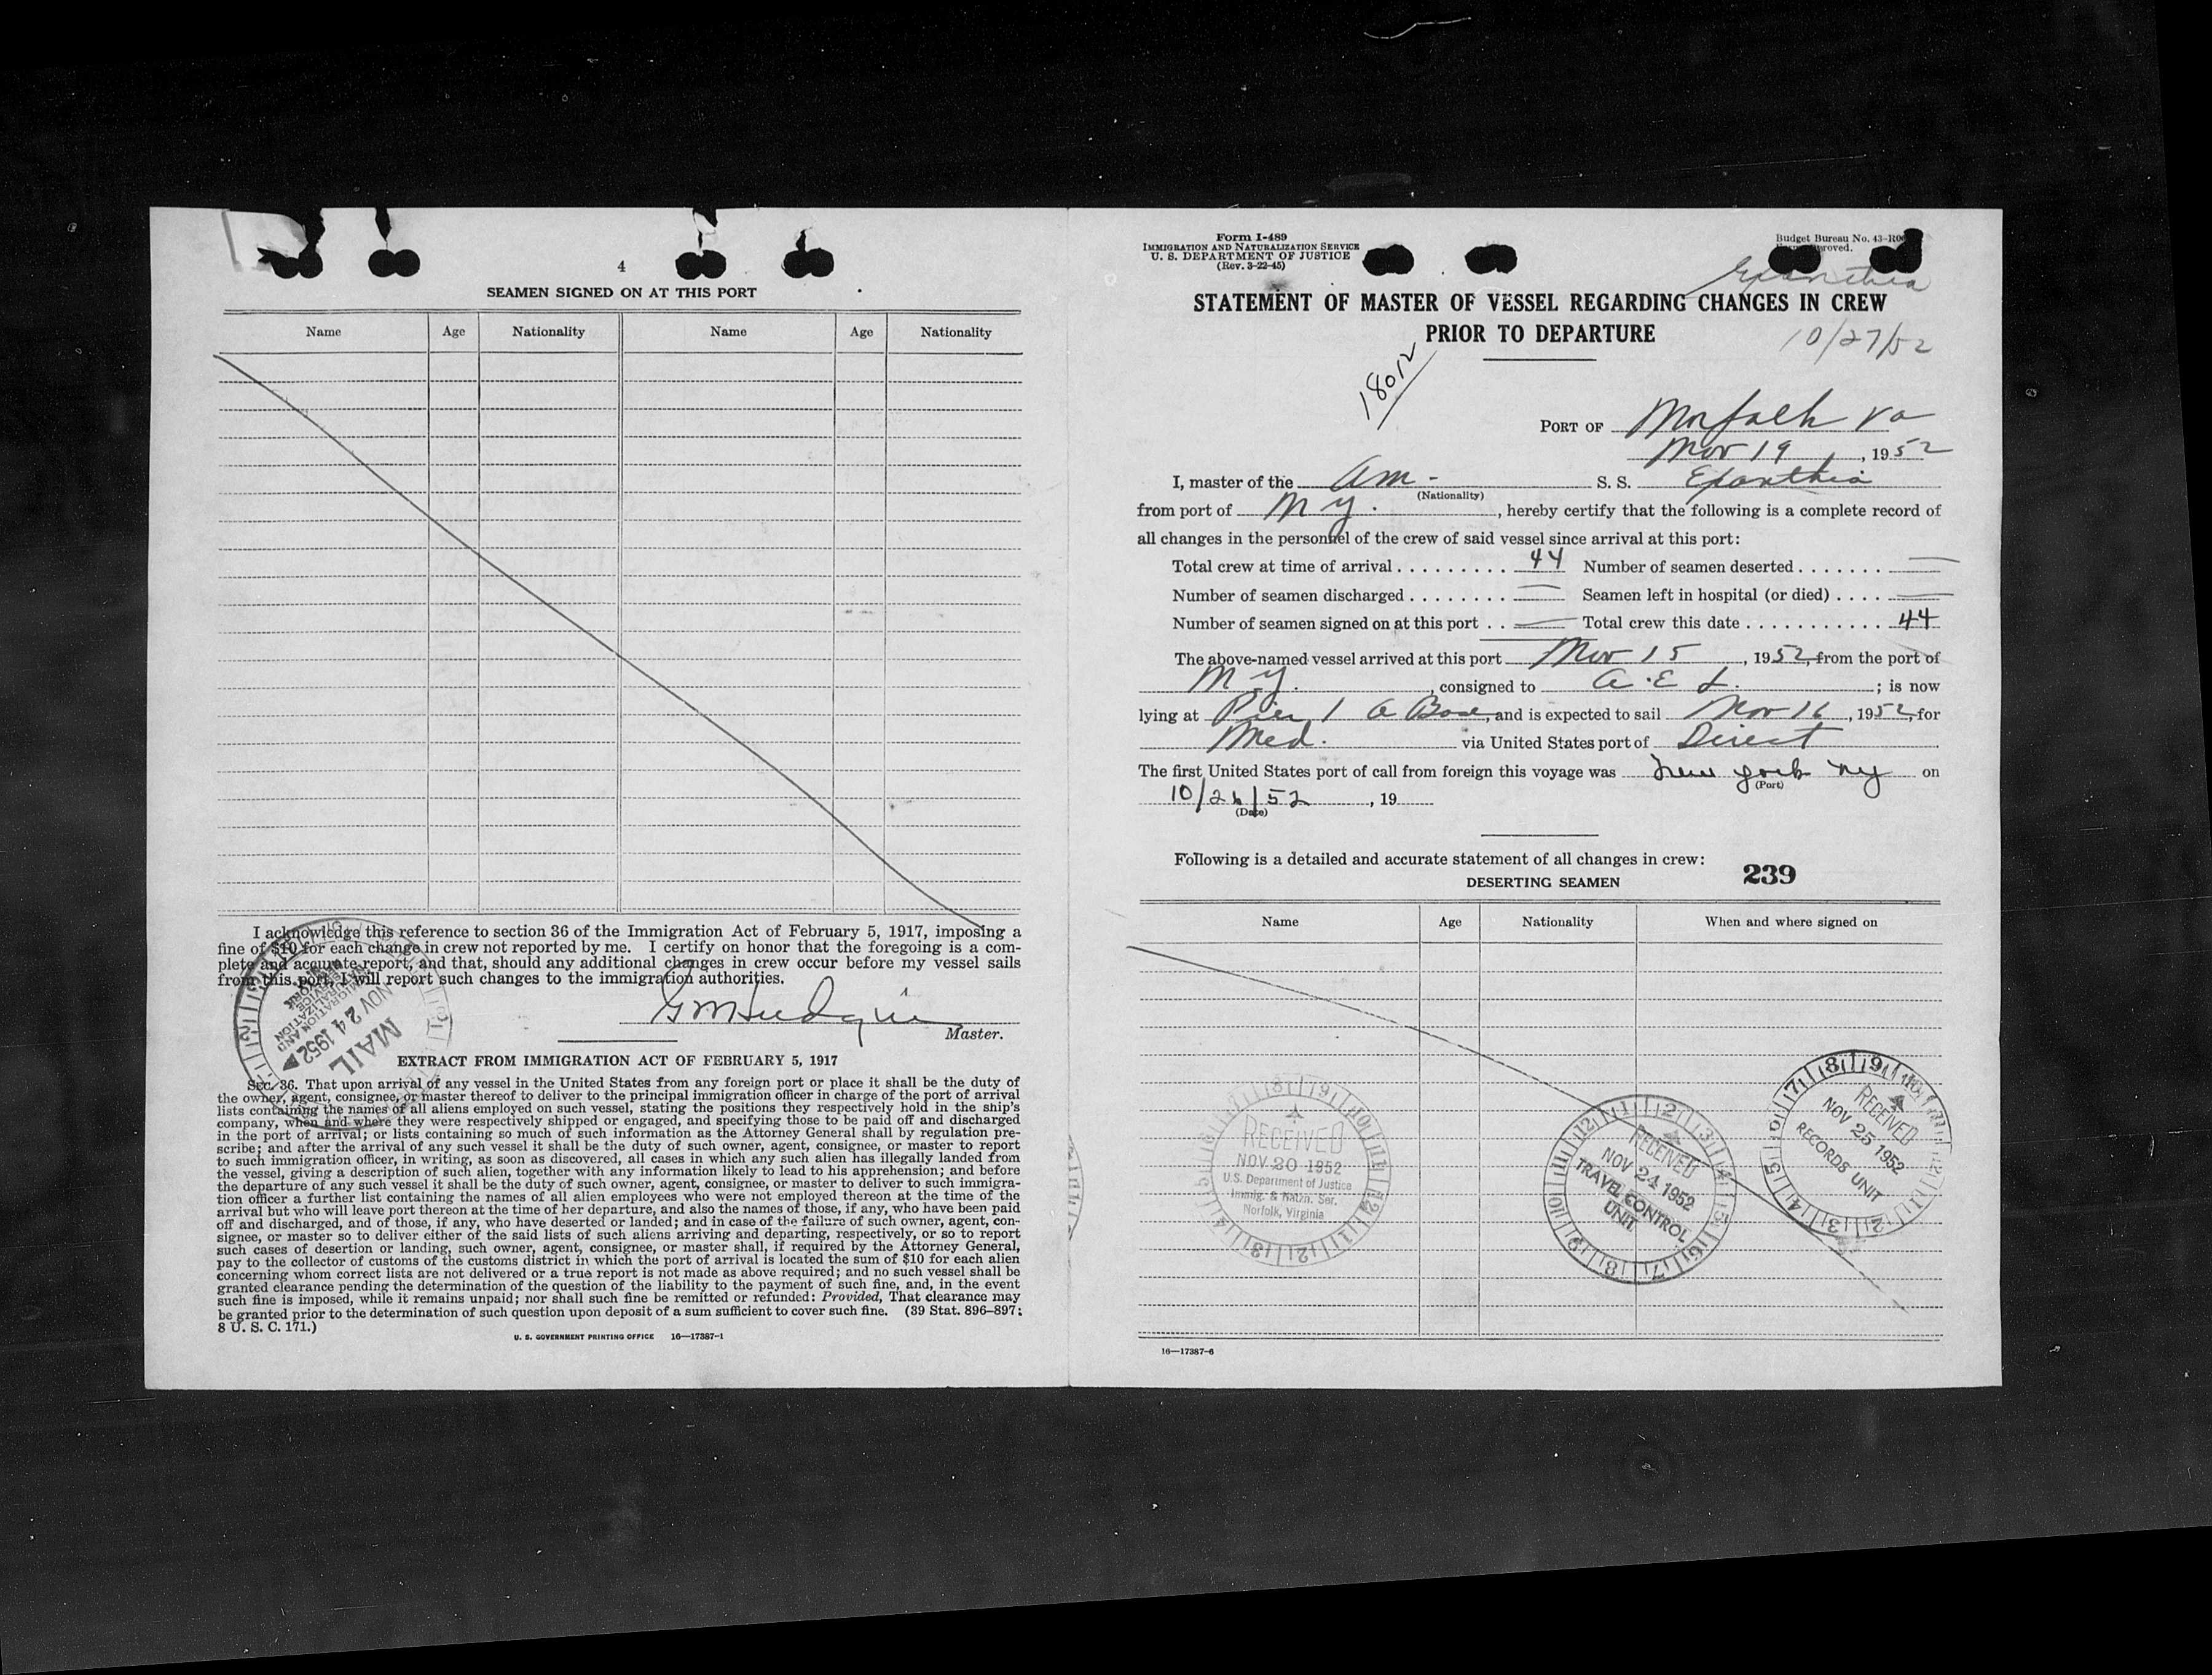 4
SEAMEN SIGNED ON AT THIS PORT
Name Age Nationality Name Age Nationality
I acknowledge this reference to section 36 of the Immigration Act of February 5, 1917, imposing a
fine of $10 for each change in crew not reported by me. I certify on honor that the foregoing is a com-
plete and accurate report, and that, should any additional changes in crew occur before my vessel sails
from this port, I will report such changes to the immigration authorities.
Master.
IMMIGRATION AND
NATURALIZATION
SERVICE
NOV 24 1952
MAIL
EXTRACT FROM IMMIGRATION ACT OF FEBRUARY 5, 1917
SEC. 36. That upon arrival of any vessel in the United States from any foreign port or place it shall be the duty of
the owner, agent, consignee, or master thereof to deliver to the principal immigration officer in charge of the port of arrival
lists containing the names of all aliens employed on such vessel, stating the positions they respectively hold in the ship's
company, when and where they were respectively shipped or engaged, and specifying those to be paid off and discharged
in the port of arrival; or lists containing so much of such information as the Attorney General shall by regulation pre-
scribe; and after the arrival of any such vessel it shall be the duty of such owner, agent, consignee, or master to report
to such immigration officer, in writing, as soon as discovered, all cases in which any such alien has illegally landed from
the vessel, giving a description of such alien, together with any information likely to lead to his apprehension; and before
the departure of any such vessel it shall be the duty of such owner, agent, consignee, or master to deliver to such immigra-
tion officer a further list containing the names of all alien employees who were not employed thereon at the time of the
arrival but who will leave port thereon at the time of her departure, and also the names of those, if any, who have been paid
off and discharged, and of those, if any, who have deserted or landed; and in case of the failure of such owner, agent, con-
signee, or master so to deliver either of the said lists of such aliens arriving and departing, respectively, or so to report
such cases of desertion or landing, such owner, agent, consignee, or master shall, if required by the Attorney General,
pay to the collector of customs of the customs district in which the port of arrival is located the sum of $10 for each alien
concerning whom correct lists are not delivered or a true report is not made as above required; and no such vessel shall be
granted clearance pending the determination of the question of the liability to the payment of such fine, and, in the event
such fine is imposed, while it remains unpaid; nor shall such fine be remitted or refunded: Provided, That clearance may
be granted prior to the determination of such question upon deposit of a sum sufficient to cover such fine. (39 Stat. 896–897;
8 U. S. C. 171.)
U. S. GOVERNMENT PRINTING OFFICE 16—17387-1
Form I-489
IMMIGRATION AND NATURALIZATION SERVICE
U. S. DEPARTMENT OF JUSTICE
(Rev. 3-22-45)
Budget Bureau No. 43-R0
Exanthia
STATEMENT OF MASTER OF VESSEL REGARDING CHANGES IN CREW
PRIOR TO DEPARTURE
10/27/52
18012
PORT OF Norfolk Va
Nov 19, 1952
I, master of the Am - S. S. Exanthia
(Nationality)
from port of N Y., hereby certify that the following is a complete record of
all changes in the personnel of the crew of said vessel since arrival at this port:
Total crew at time of arrival . . . . . . . . . 44 Number of seamen deserted . . . . . . . —
Number of seamen discharged . . . . . . . . — Seamen left in hospital (or died) . . . . —
Number of seamen signed on at this port . . — Total crew this date . . . . . . . . . . . 44
The above-named vessel arrived at this port Nov 15, 1952, from the port of
N.Y., consigned to A.E.L.; is now
lying at Pier 1 A Base, and is expected to sail Nov 16, 1952, for
Med. via United States port of Direct
The first United States port of call from foreign this voyage was New York NY on
(Port)
10/26/52, 19
(Date)
Following is a detailed and accurate statement of all changes in crew:
239
DESERTING SEAMEN
Name Age Nationality When and where signed on
RECEIVED
NOV 20 1952
U.S. Department of Justice
Immig. & Natzn. Ser.
Norfolk, Virginia
RECEIVED
NOV 24 1952
TRAVEL CONTROL
UNIT
RECEIVED
NOV 25 1952
RECORDS UNIT
16—17387-6